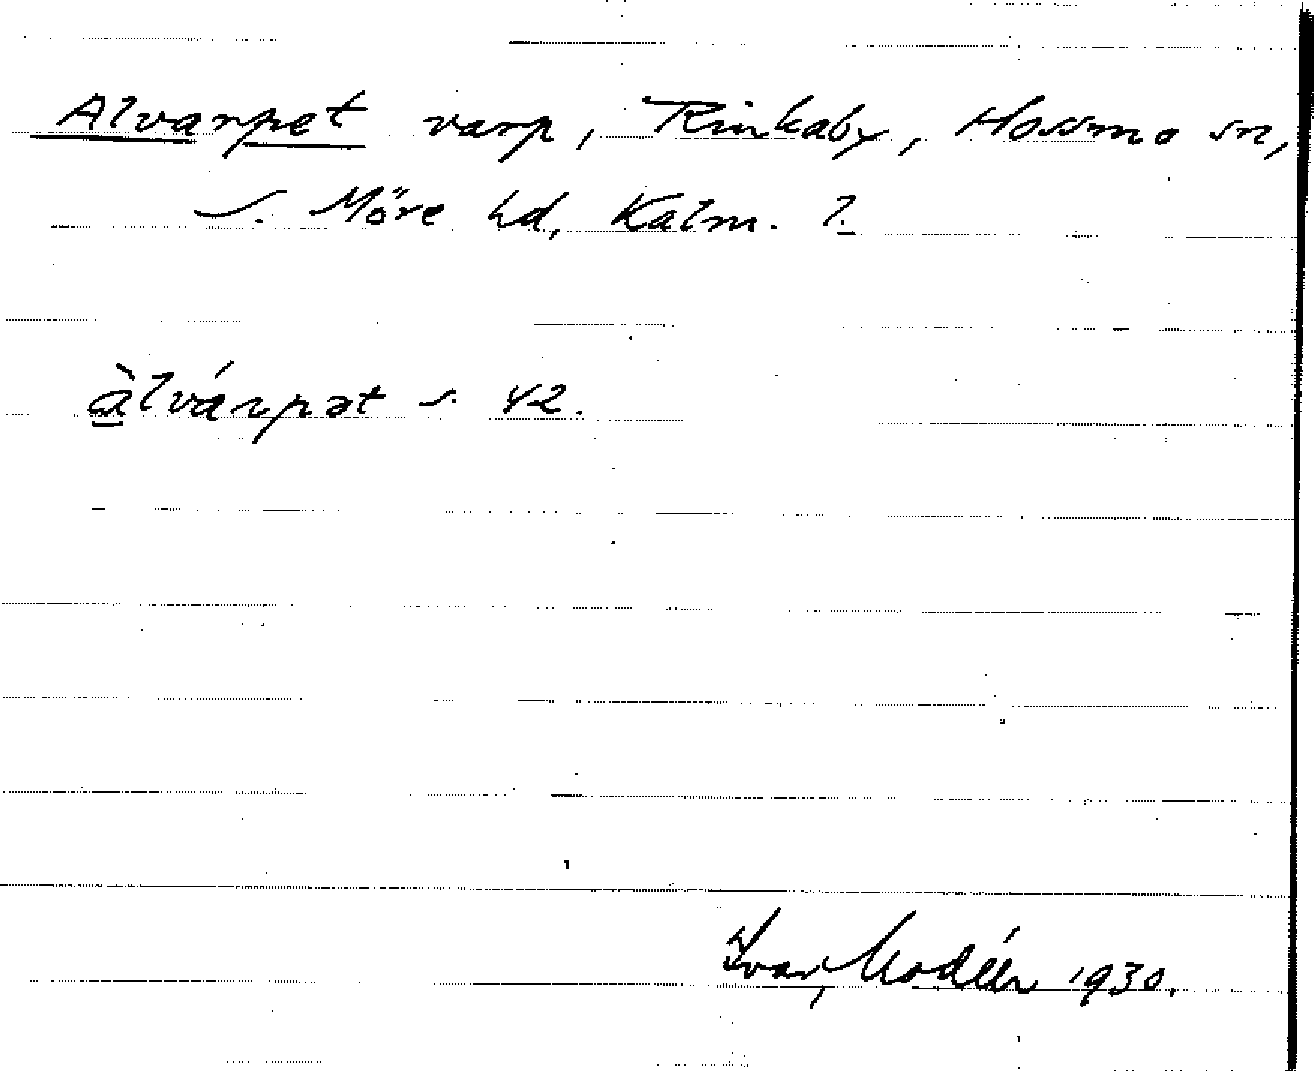 Alvarpet varp, Rinkaby, Hossmo sn,
S. Möre hd, Kalm. l.
àlvárpət s. 42.
Ivar Modéer 1930.